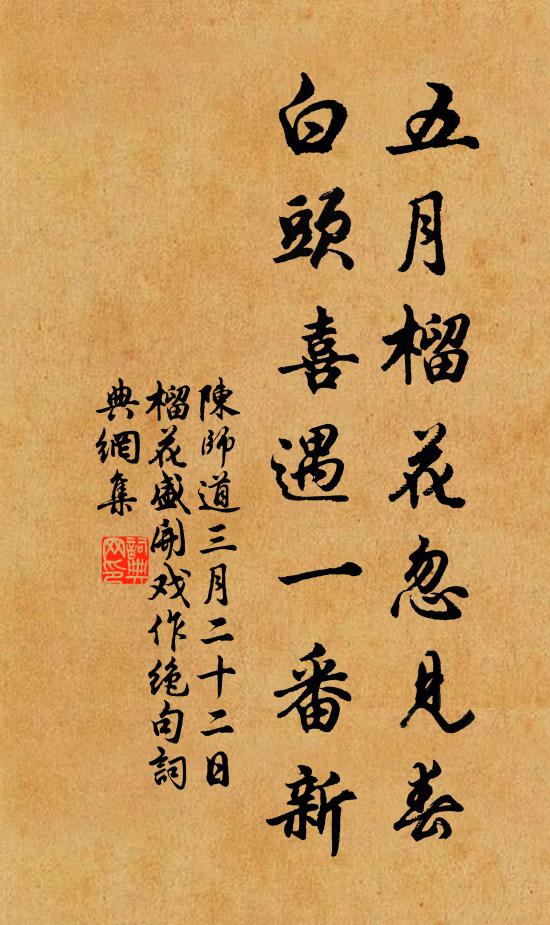 五月榴花忽見春
白頭喜遇一番新
陳師道三月二十二日
榴花盛開戏作绝句詞
典網集
詞典
网印